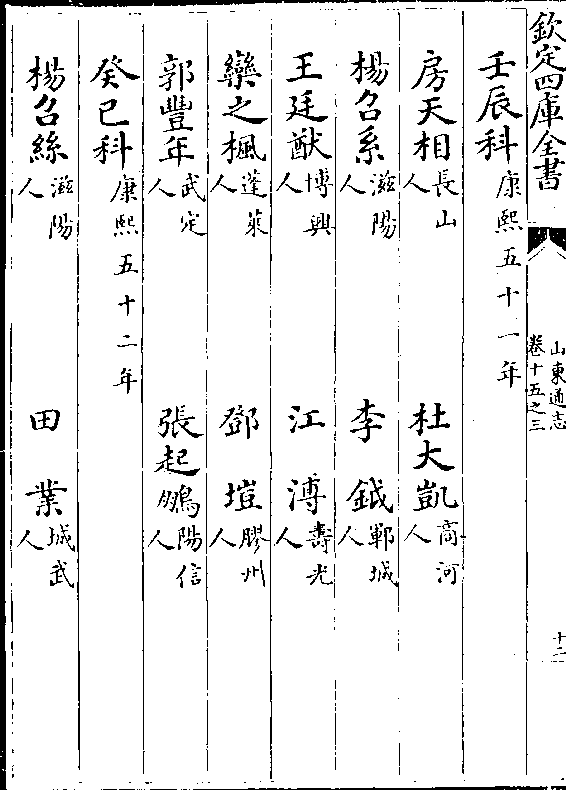 欽定四庫全書
山東通志
卷十五之三
十二
壬辰科康熙五十一年
房天相長山人
杜大凱商河人
楊名系滋陽人
李鉞鄆城人
王廷猷博興人
江溥壽光人
欒之楓蓬萊人
鄧塏膠州人
郭豐年武定人
張起鵬陽信人
癸巳科康熙五十二年
楊名絲滋陽人
田業城武人